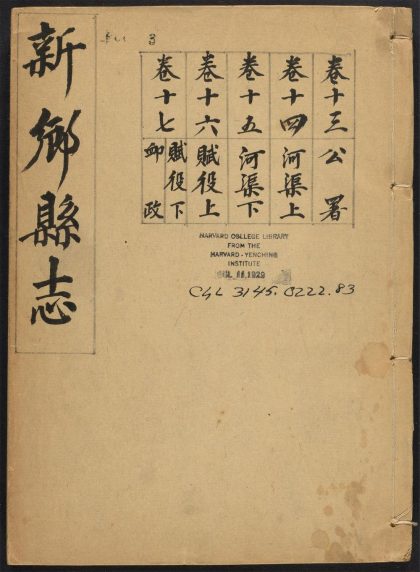 新鄉縣志
卷十三 公署
卷十四 河渠上
卷十五 河渠下
卷十六 賦役上
卷十七 賦役下
郵政
HARVARD COLLEGE LIBRARY
FROM THE
HARVARD-YENCHING
INSTITUTE
1929
C4L 3145.0222.83